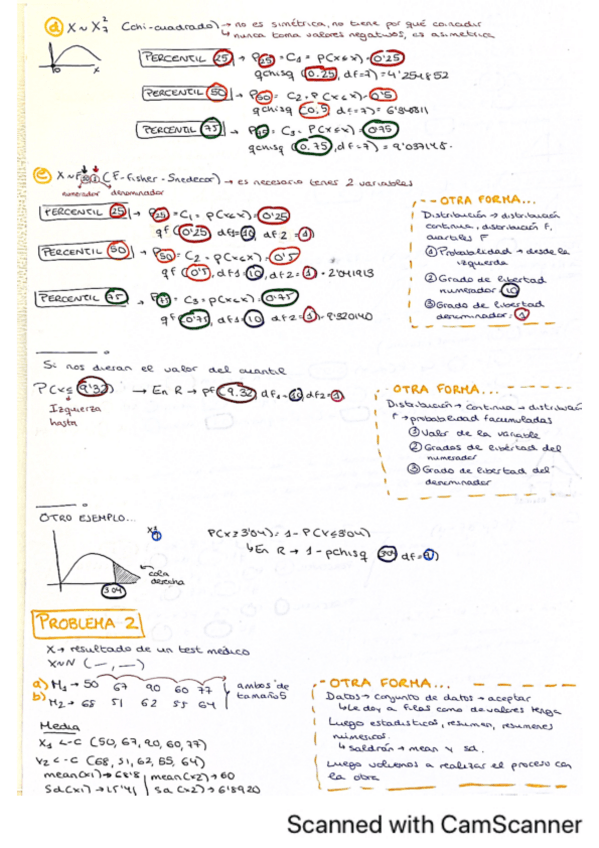 d X ~ X²₇ (chi-cuadrado) → no es simétrica, no tiene por qué coincidir
↳ nunca toma valores negativos, es asimetrica
0 x
PERCENTIL 25 → P25 = C1 = P(X≤x) = 0'25
qchisq (0.25, df=7) = 4'254852
PERCENTIL 50 → P50 = C2 = P(X≤x) = 0'5
qchisq (0.5, df=7) = 6'345811
PERCENTIL 75 → P75 = C3 = P(X≤x) = 0'75
qchisq (0.75, df=7) = 9'037148.
e (F-Fisher-Snedecor) → es necesario tener 2 variables
numerador denominador
PERCENTIL 25 → P25 = C1 = P(X≤x) = 0'25
qf (0'25, df1=10, df2=1)
PERCENTIL 50 → P50 = C2 = P(X≤x) = 0'5
qf (0'5, df1=10, df2=1) = 2'041913
PERCENTIL 75 → P75 = C3 = P(X≤x) = 0'75
qf (0'75, df1=10, df2=1) = 9'320140
OTRA FORMA...
Distribución → distribución
continua, distribución F,
cuartiles F
① Probabilidad → desde la
izquierda
② Grado de libertad
numerador: 10
③ Grado de libertad
denominador: 1
Si nos dieran el valor del cuantil
P(x≤ 9'32) → En R → pf (9.32, df1=10, df2=1)
Izquierza
hasta
OTRA FORMA...
Distribución → continua → distribución
F → probabilidad
① Valor de la variable
② Grados de libertad del
numerador
③ Grado de libertad del
denominador
OTRO EJEMPLO...
cola
derecha
3'04
P(X≥3'04) = 1 - P(X≤3'04)
↳ En R → 1 - pchisq (3'04, df=1)
PROBLEMA 2
X → resultado de un test médico
X~N (—, —)
a) M1 → 50 67 90 60 77
b) M2 → 68 51 62 55 64
ambos de
tamaño 5
Media
X1 <- c (50, 67, 90, 60, 77)
X2 <- c (68, 51, 62, 55, 64)
mean(x1) → 68'8 | mean(x2) → 60
Sd(x1) → 15'41 | sd (x2) → 6'8920
OTRA FORMA...
Datos → conjunto de datos → aceptar
↳ Le doy a filas como de valores tenga
Luego estadísticos, resumen, resumenes
numericos.
↳ saldrán → mean y sd.
Luego volvemos a realizar el proceso con
la otra
Scanned with CamScanner